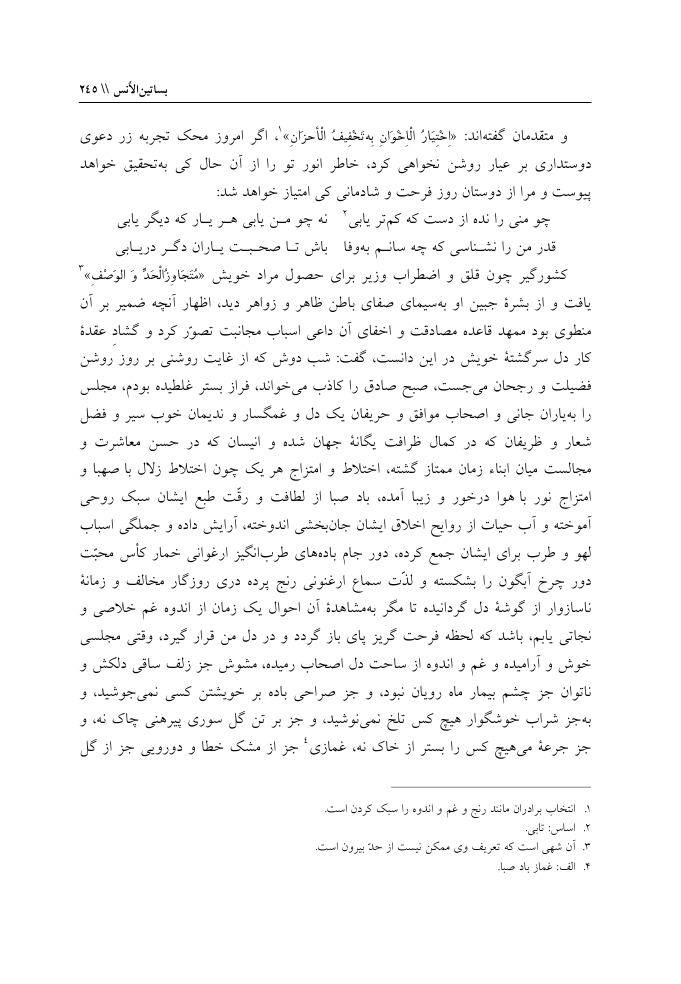 بساتین‌الأنس \\ ٢٤٥
و متقدمان گفته‌اند: «اِخْتِیَارُ الْاِخْوَانِ بِهِ‌تَخْفِیفُ الْأحزَانِ»۱، اگر امروز محک تجربه زر دعوی
دوستداری بر عیار روشن نخواهی کرد، خاطر انور تو را از آن حال کی به‌تحقیق خواهد
پیوست و مرا از دوستان روز فرحت و شادمانی کی امتیاز خواهد شد:
چو منی را نده از دست که کم‌تر یابی۲ نه چو مـن یابی هـر یـار که دیگر یابی
قدر من را نشـناسی که چه سانـم به‌وفا باش تـا صحـبـت یـاران دگـر دریـابی
کشورگیر چون قلق و اضطراب وزیر برای حصول مراد خویش «مُتَجَاوِزُالْحَدِّ وَ الوَصْفِ»۳
یافت و از بشرهٔ جبین او به‌سیمای صفای باطن ظاهر و زواهر دید، اظهار آنچه ضمیر بر آن
منطوی بود ممهد قاعده مصادقت و اخفای آن داعی اسباب مجانبت تصوّر کرد و گشادِ عقدهٔ
کار دل سرگشتهٔ خویش در این دانست، گفت: شب دوش که از غایت روشنی بر روز روشن
فضیلت و رجحان می‌جست، صبح صادق را کاذب می‌خواند، فراز بستر غلطیده بودم، مجلس
را به‌یاران جانی و اصحاب موافق و حریفان یک دل و غمگسار و ندیمان خوب سیر و فضل
شعار و ظریفان که در کمال ظرافت یگانهٔ جهان شده و انیسان که در حسن معاشرت و
مجالست میان ابناء زمان ممتاز گشته، اختلاط و امتزاج هر یک چون اختلاط زلال با صهبا و
امتزاج نور با هوا درخور و زیبا آمده، باد صبا از لطافت و رقّت طبع ایشان سبک روحی
آموخته و آب حیات از روایح اخلاق ایشان جان‌بخشی اندوخته، آرایش داده و جملگی اسباب
لهو و طرب برای ایشان جمع کرده، دور جام باده‌های طرب‌انگیز ارغوانی خمار کأس محبّت
دور چرخ آبگون را بشکسته و لذّت سماع ارغنونی رنج پرده دری روزگار مخالف و زمانهٔ
ناسازوار از گوشهٔ دل گردانیده تا مگر به‌مشاهدهٔ آن احوال یک زمان از اندوه غم خلاصی و
نجاتی یابم، باشد که لحظه فرحت گریز پای باز گردد و در دل من قرار گیرد، وقتی مجلسی
خوش و آرامیده و غم و اندوه از ساحت دل اصحاب رمیده، مشوش جز زلف ساقی دلکش و
ناتوان جز چشم بیمار ماه رویان نبود، و جز صراحی باده بر خویشتن کسی نمی‌جوشید، و
به‌جز شراب خوشگوار هیچ کس تلخ نمی‌نوشید، و جز بر تن گل سوری پیرهنی چاک نه، و
جز جرعهٔ می‌هیچ کس را بستر از خاک نه، غمازی۴ جز از مشک خطا و دورویی جز از گل
۱. انتخاب برادران مانند رنج و غم و اندوه را سبک کردن است.
۲. اساس: تابی.
۳. آن شهی است که تعریف وی ممکن نیست از حدّ بیرون است.
۴. الف: غماز باد صبا.